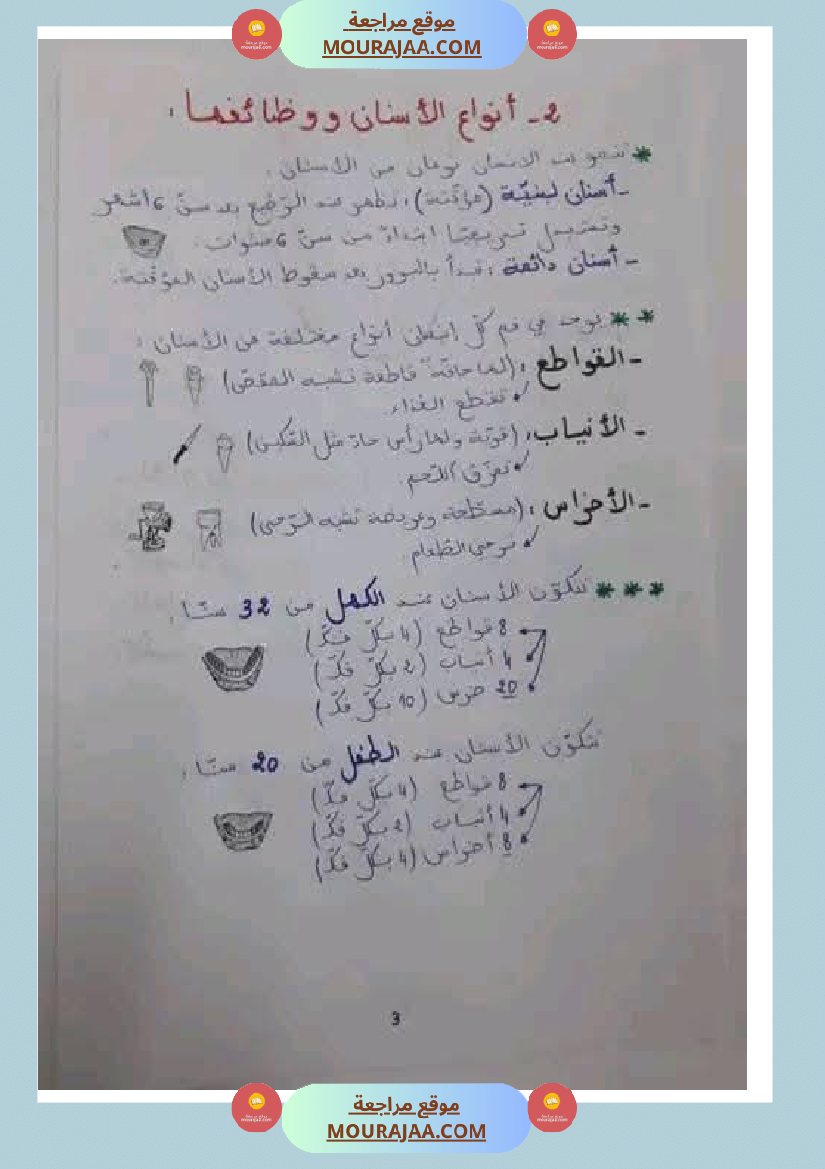 موقع مراجعة
MOURAJAA.COM
2- أنواع الأسنان ووظائفها :
* تنمو عند الإنسان نوعان من الأسنان :
- أسنان لبنيّة (مؤقّتة) : تظهر عند الرّضيع بعد سنّ 6 أشهر
وتستبدل تدريجيّا ابتداءً من سنّ 6 سنوات .
- أسنان دائمة : تبدأ بالبروز بعد سقوط الأسنان المؤقّتة .
** يوجد في فم كلّ إنسان أنواع مختلفة من الأسنان :
- القواطع : (لها حافّة قاطعة تشبه المقصّ)
تقطع الغذاء
- الأنياب : (قويّة ولها رأس حادّ مثل السّكين)
تمزّق اللّحم
- الأضراس : (مسطّحة وعريضة تشبه الرّحى)
ترحي الطّعام
*** تتكوّن الأسنان عند الكهل من 32 سنّا :
8 قواطع (4 بكلّ فكّ)
4 أنياب (2 بكلّ فكّ)
20 ضرس (10 بكلّ فكّ)
تتكوّن الأسنان عند الطفل من 20 سنّا :
8 قواطع (4 بكلّ فكّ)
4 أنياب (2 بكلّ فكّ)
8 أضراس (4 بكلّ فكّ)
3
موقع مراجعة
MOURAJAA.COM